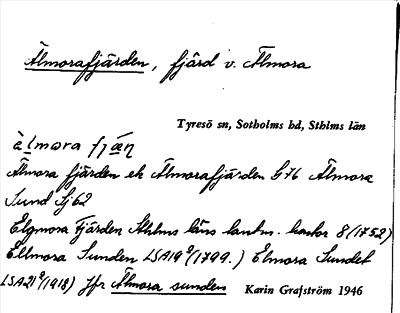 Älmorafjärden, fjärd v. Älmora
Tyresö sn, Sotholms hd, Sthlms län
àlmora fjǽn
Älmora fjärden ek Älmorafjärden G76 Älmora
Sund Sj62
Elgmora Fjärden Sthlms läns lantm. kontor 8 (1752)
Ellmora Sunden LSA19 (1799.) Elmora Sundet
LSA21 (1918) Jfr Älmora sunden Karin Grafström 1946